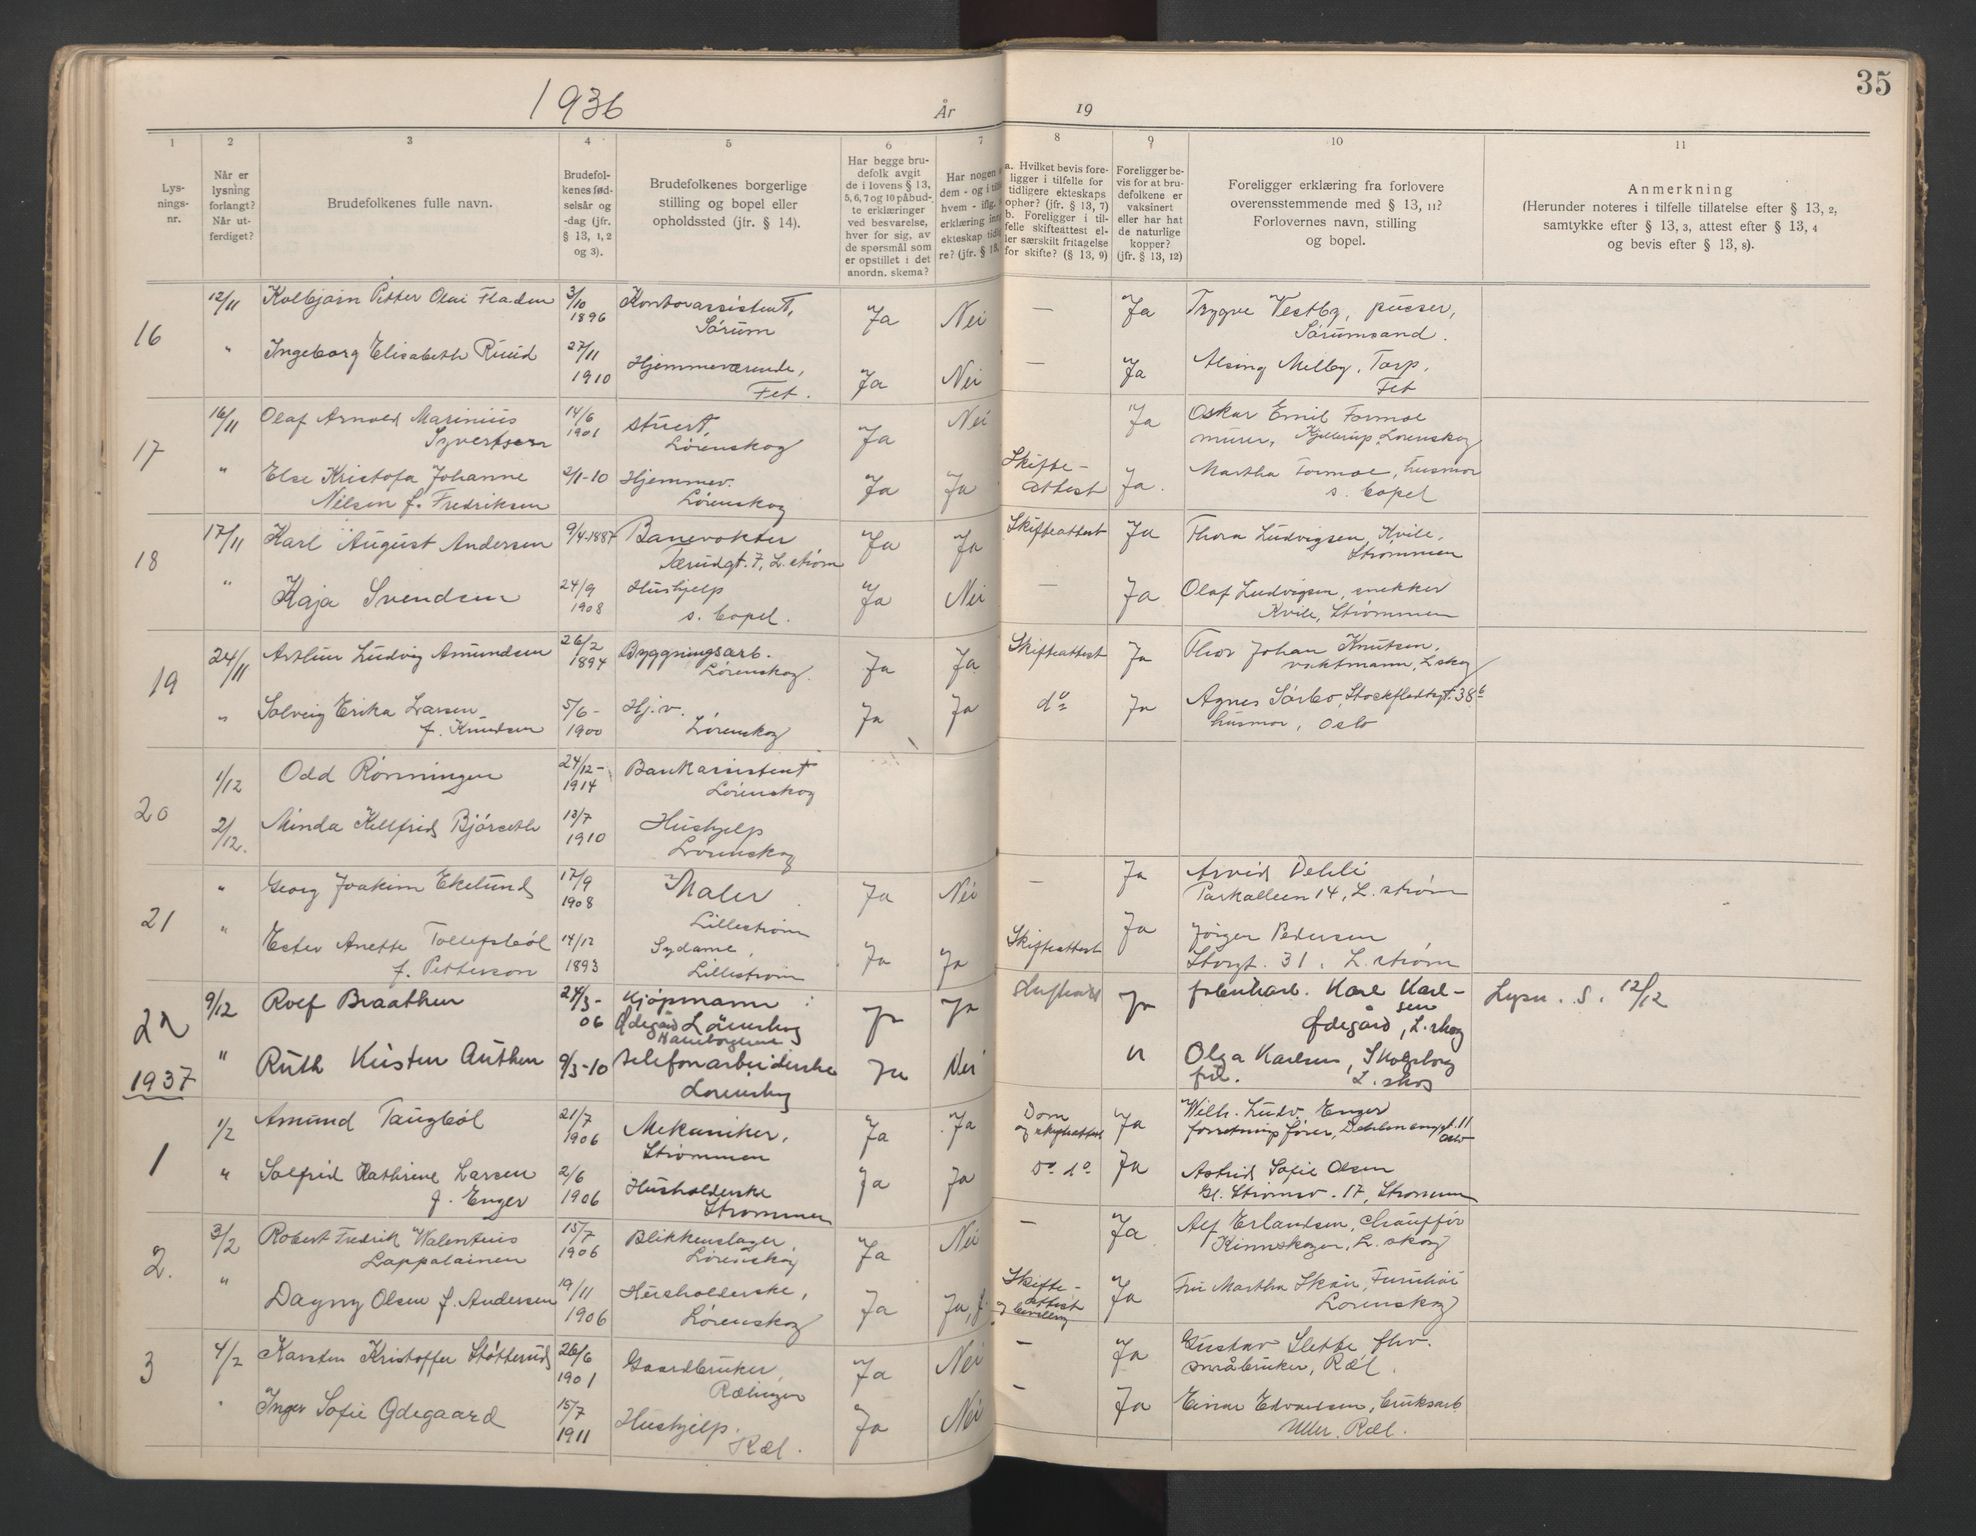 1936
År
19
35
1
2
3
4
5
6
7
8
9
10
11
Lys-
nings-
nr.
Når er
lysning
forlangt?
Når ut-
ferdiget?
Brudefolkenes fulle navn.
Brudefol-
kenes fød-
selsår og
-dag (jfr.
§ 13, 1, 2
og 3).
Brudefolkenes borgerlige
stilling og bopel eller
opholdssted (jfr. § 14).
Har begge bru-
defolk avgit
de i lovens § 13,
5, 6, 7 og 10 påbud-
te erklæringer
ved besvarelse,
hver for sig, av
de spørsmål som
er opstillet i det
anordn. skema?
Har nogen
dem - og i
hvem - iflg.
erklæring
ekteskap
re? (jfr. § 13,
a. Hvilket bevis fore-
ligger i tilfelle for
tidligere ekteskaps
ophør? (jfr. § 13, 7)
b. Foreligger i til-
felle skifteattest el-
ler særskilt fritagelse
for skifte? (§ 13, 9)
Foreligger be-
vis for at bru-
defolkene er
vaksinert
eller har hat
de naturlige
kopper?
(jfr. § 13, 12)
Foreligger erklæring fra forlovere
overensstemmende med § 13, 11?
Forlovernes navn, stilling
og bopel.
Anmerkning
(Herunder noteres i tilfelle tillatelse efter § 13, 2,
samtykke efter § 13, 3, attest efter § 13, 4
og bevis efter § 13, 8).
16 12/11 Kolbjørn Petter Olai Fladen 3/10 1896 Kontorassistent, Ja Nei — Ja Trygve Vestby, pusser,
Sørum Sørumsand.
" Ingeborg Elisabeth Ruud 27/11 1910 Hjemmeværende, Ja Nei — Ja Alsing Melby, Tarp,
Fet. Fet
17 16/11 Olaf Arnold Marinius 14/6 1901 stuert, Ja Nei Ja Oskar Emil Formoe
Syvertsen Lørenskog murer, Kjellerup, Lørenskog
" Else Kristofa Johanne 2/1-10 Hjemmev. Ja Ja Skifte- Ja. Martha Formoe, husmor
Nilsen f. Fredriksen Lørenskog attest s. bopel
18 17/11 Karl August Andersen 9/4-1887 Banevokter Ja Ja Skifteattest Ja Thora Ludvigsen, Kvile,
Tærudgt. 7, L.strøm Strømmen
" Kaja Svendsen 24/9 1908 Hushjelp Ja Nei — Ja Olaf Ludvigsen, snekker
s. bopel. Kvile, Strømmen
19 24/11 Arthur Ludvig Amundsen 26/2 1894 Byggningsarb. Ja Ja Skifteattest Ja Thor Johan Knutsen,
Lørenskog. vaktmann, L.skog
" Solveig Erika Larsen 5/6- 1900 Hj.v. Ja Ja do Ja Agnes Sørbo, Stockfledtsgt. 38b
f. Knudsen Lørenskog husmor, Oslo
20 1/12 Odd Rønningen 24/12- 1914 Bankassistent
Lørenskog
2/12. Minda Bjørseth 13/7 1910 Hushjelp
Lørenskog
21 " Georg Joakim Ekelund 17/9 1908 Maler Ja Nei — Ja Arvid Dehli
Lillestrøm Parkalleen 14, L.strøm
" Ester Anette Tollefsbøl 14/12 1893 Sydame, Ja Ja Skifteattest Ja Jörger Pedersen
f. Petterson Lillestrøm Storgt. 31, L.strøm
22 9/12 Rolf Braathen 24/3- 06 Kjøpmann Ja Ja Ja Karl Karl- Lysn. s. 12/12
Ødegård Lørenskog sen
Ødegård, L.skog
" Ruth Authen 9/3-10 telefonarbeiderske Ja Nei " Olga Karlsen, Skogsborg
Lørenskog frk. L.skog
1937
1 1/2 Amund Taugbøl 21/7 1906 Mekaniker, Ja Ja Dom Ja Wilh. Ludv. Enger
Strømmen og skifteattest forretningsfører, 11 Oslo
" Solfrid Kathrine Larsen 2/6 1906 Husholderske Ja Ja do do Ja Astrid Sofie Olsen
f. Enger Strømmen Gl. Strømsv. 17, Strømmen
2. 3/2 Robert Fredrik Walentius 15/7 1906 Blikkenslager Ja Nei — Ja Alf Erlandsen, chauffør
Lappalainen Lørenskog L.skog
" Dagny Olsen f. Andersen 19/11 1906 Husholderske, Ja Ja, f. Skifte- Ja Fru Martha Skau, Furuhöi
Lørenskog attest Lørenskog
og bevilling
3 4/2 Karsten Kristoffer Støtterud 26/6 1901 Gaardbruker, Ja Nei — Ja Gustav Slette, fhv.
Rælingen småbruker, Ræl.
" Inger Sofie Ødegaard 15/7 1911 Hushjelp, Ja Nei — Ja Einar Edvardsen, bruksarb
Ræl. Uller, Ræl.